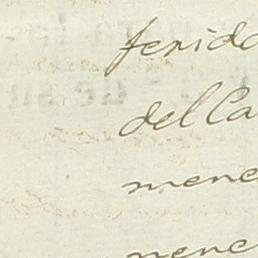 ferido
del Ca
mene
nene